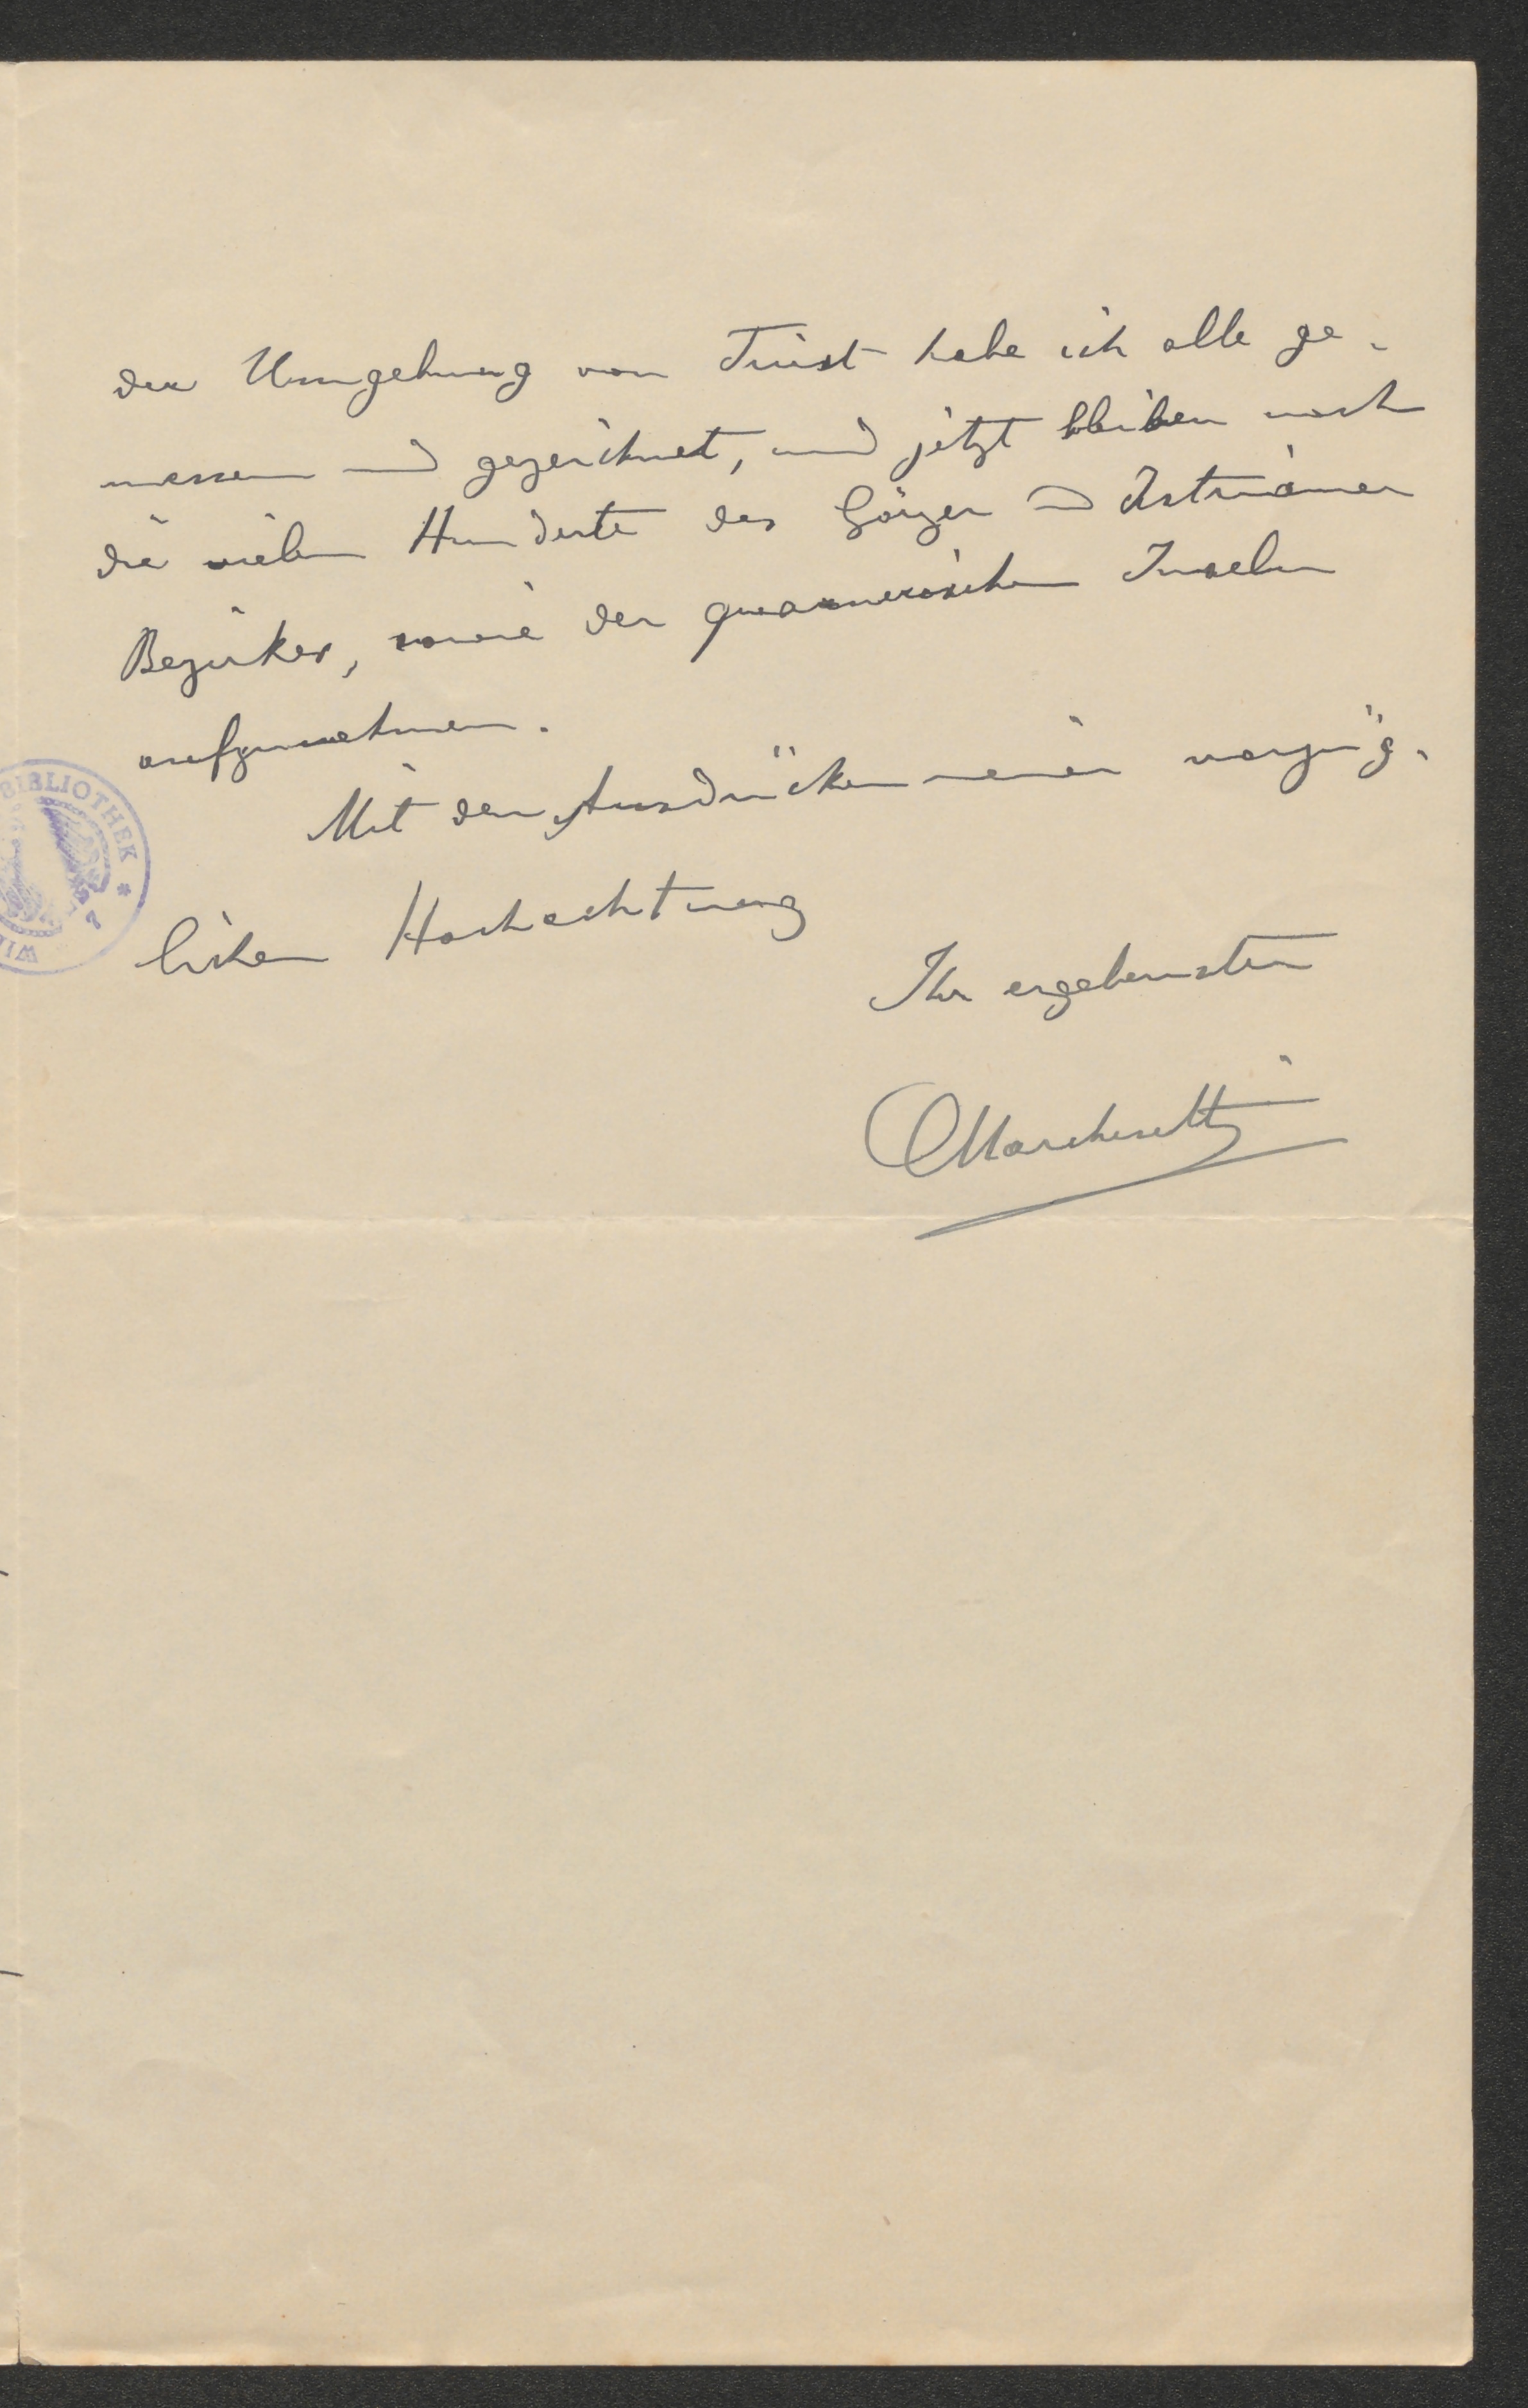 der Umgebung von Triest habe ich alle ge-
messen und gezeichnet, und jetzt bleiben noch
die vielen Hunderte des Görzer und Istrianer
Bezirkes, sowie der quarnerischen Inseln
aufzunehmen.
Mit den Ausdrücken meiner vorzüg-
lichen Hochachtung
Ihr ergebenster
CMarchesetti
BIBLIOTHEK *
WIE